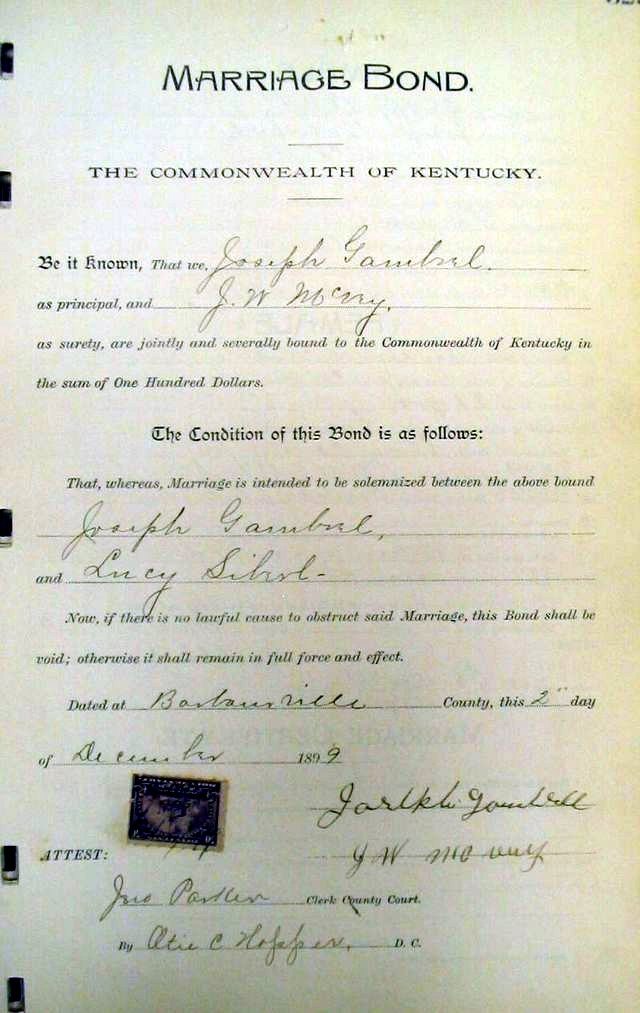 MARRIAGE BOND.
THE COMMONWEALTH OF KENTUCKY.
Be it Known, That we, Joseph Gambrel.
as principal, and J. W McVey,
as surety, are jointly and severally bound to the Commonwealth of Kentucky in
the sum of One Hundred Dollars.
The Condition of this Bond is as follows:
That, whereas, Marriage is intended to be solemnized between the above bound
Joseph Gambrel,
and Lucy
Now, if there is no lawful cause to obstruct said Marriage, this Bond shall be
void; otherwise it shall remain in full force and effect.
Dated at Barbourville County, this 2" day
of December 1899
J W McVey
ATTEST:
Jno Parker Clerk County Court.
By C Hopper, D. C.